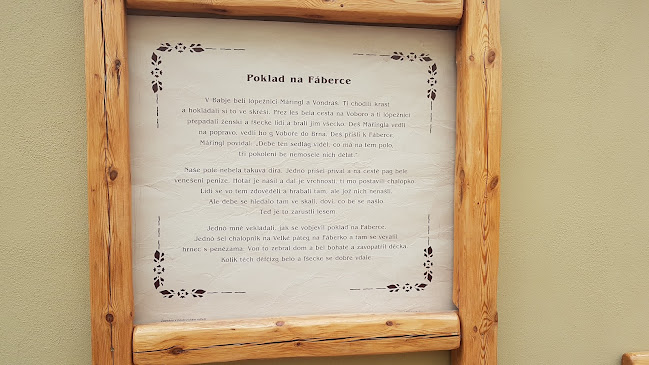 Poklad na Fáberce
V Babje beli lopežnici Máringl a Vondráš. Ti chodili krást
a bokládali si to ve skréši. Přez les bela cesta na Voboro a ti lopežnici
přepadali ženski a fšecke lidi a brali jim všecko. Deš Máringla vedli
na popravo, vedli ho g Voboře do Brna. Deš přišli k Fáberce,
Máringl povídal: „Debe ten sedlág viděl, co má na tem polo,
tři pokolení be nemosele nich dělat.“
Naše pole nebela takuvá díra. Jedno přišel příval a na cestě pag bele
venešeni peníze. Hotař je našil a dal je vrchnosti, ti mo postavili chalopko.
Lidi se vo tem zdověděli a hrabali tam, ale jož nich nenašli.
Ale debe se hledalo tam ve skali, doví, co be se našlo.
Teď je to zarustlí lesem.
Jedno mně vekládali, jak se vobjevil poklad na Fáberce.
Jedno šel chalopník na Velké páteg na Fáberko a tam se vevalil
hrnec s penězama. Von to zebral dom a bel bohaté a zavopatřil děcka.
Kolik těch děfčizg belo a fšecko se dobře vdale.